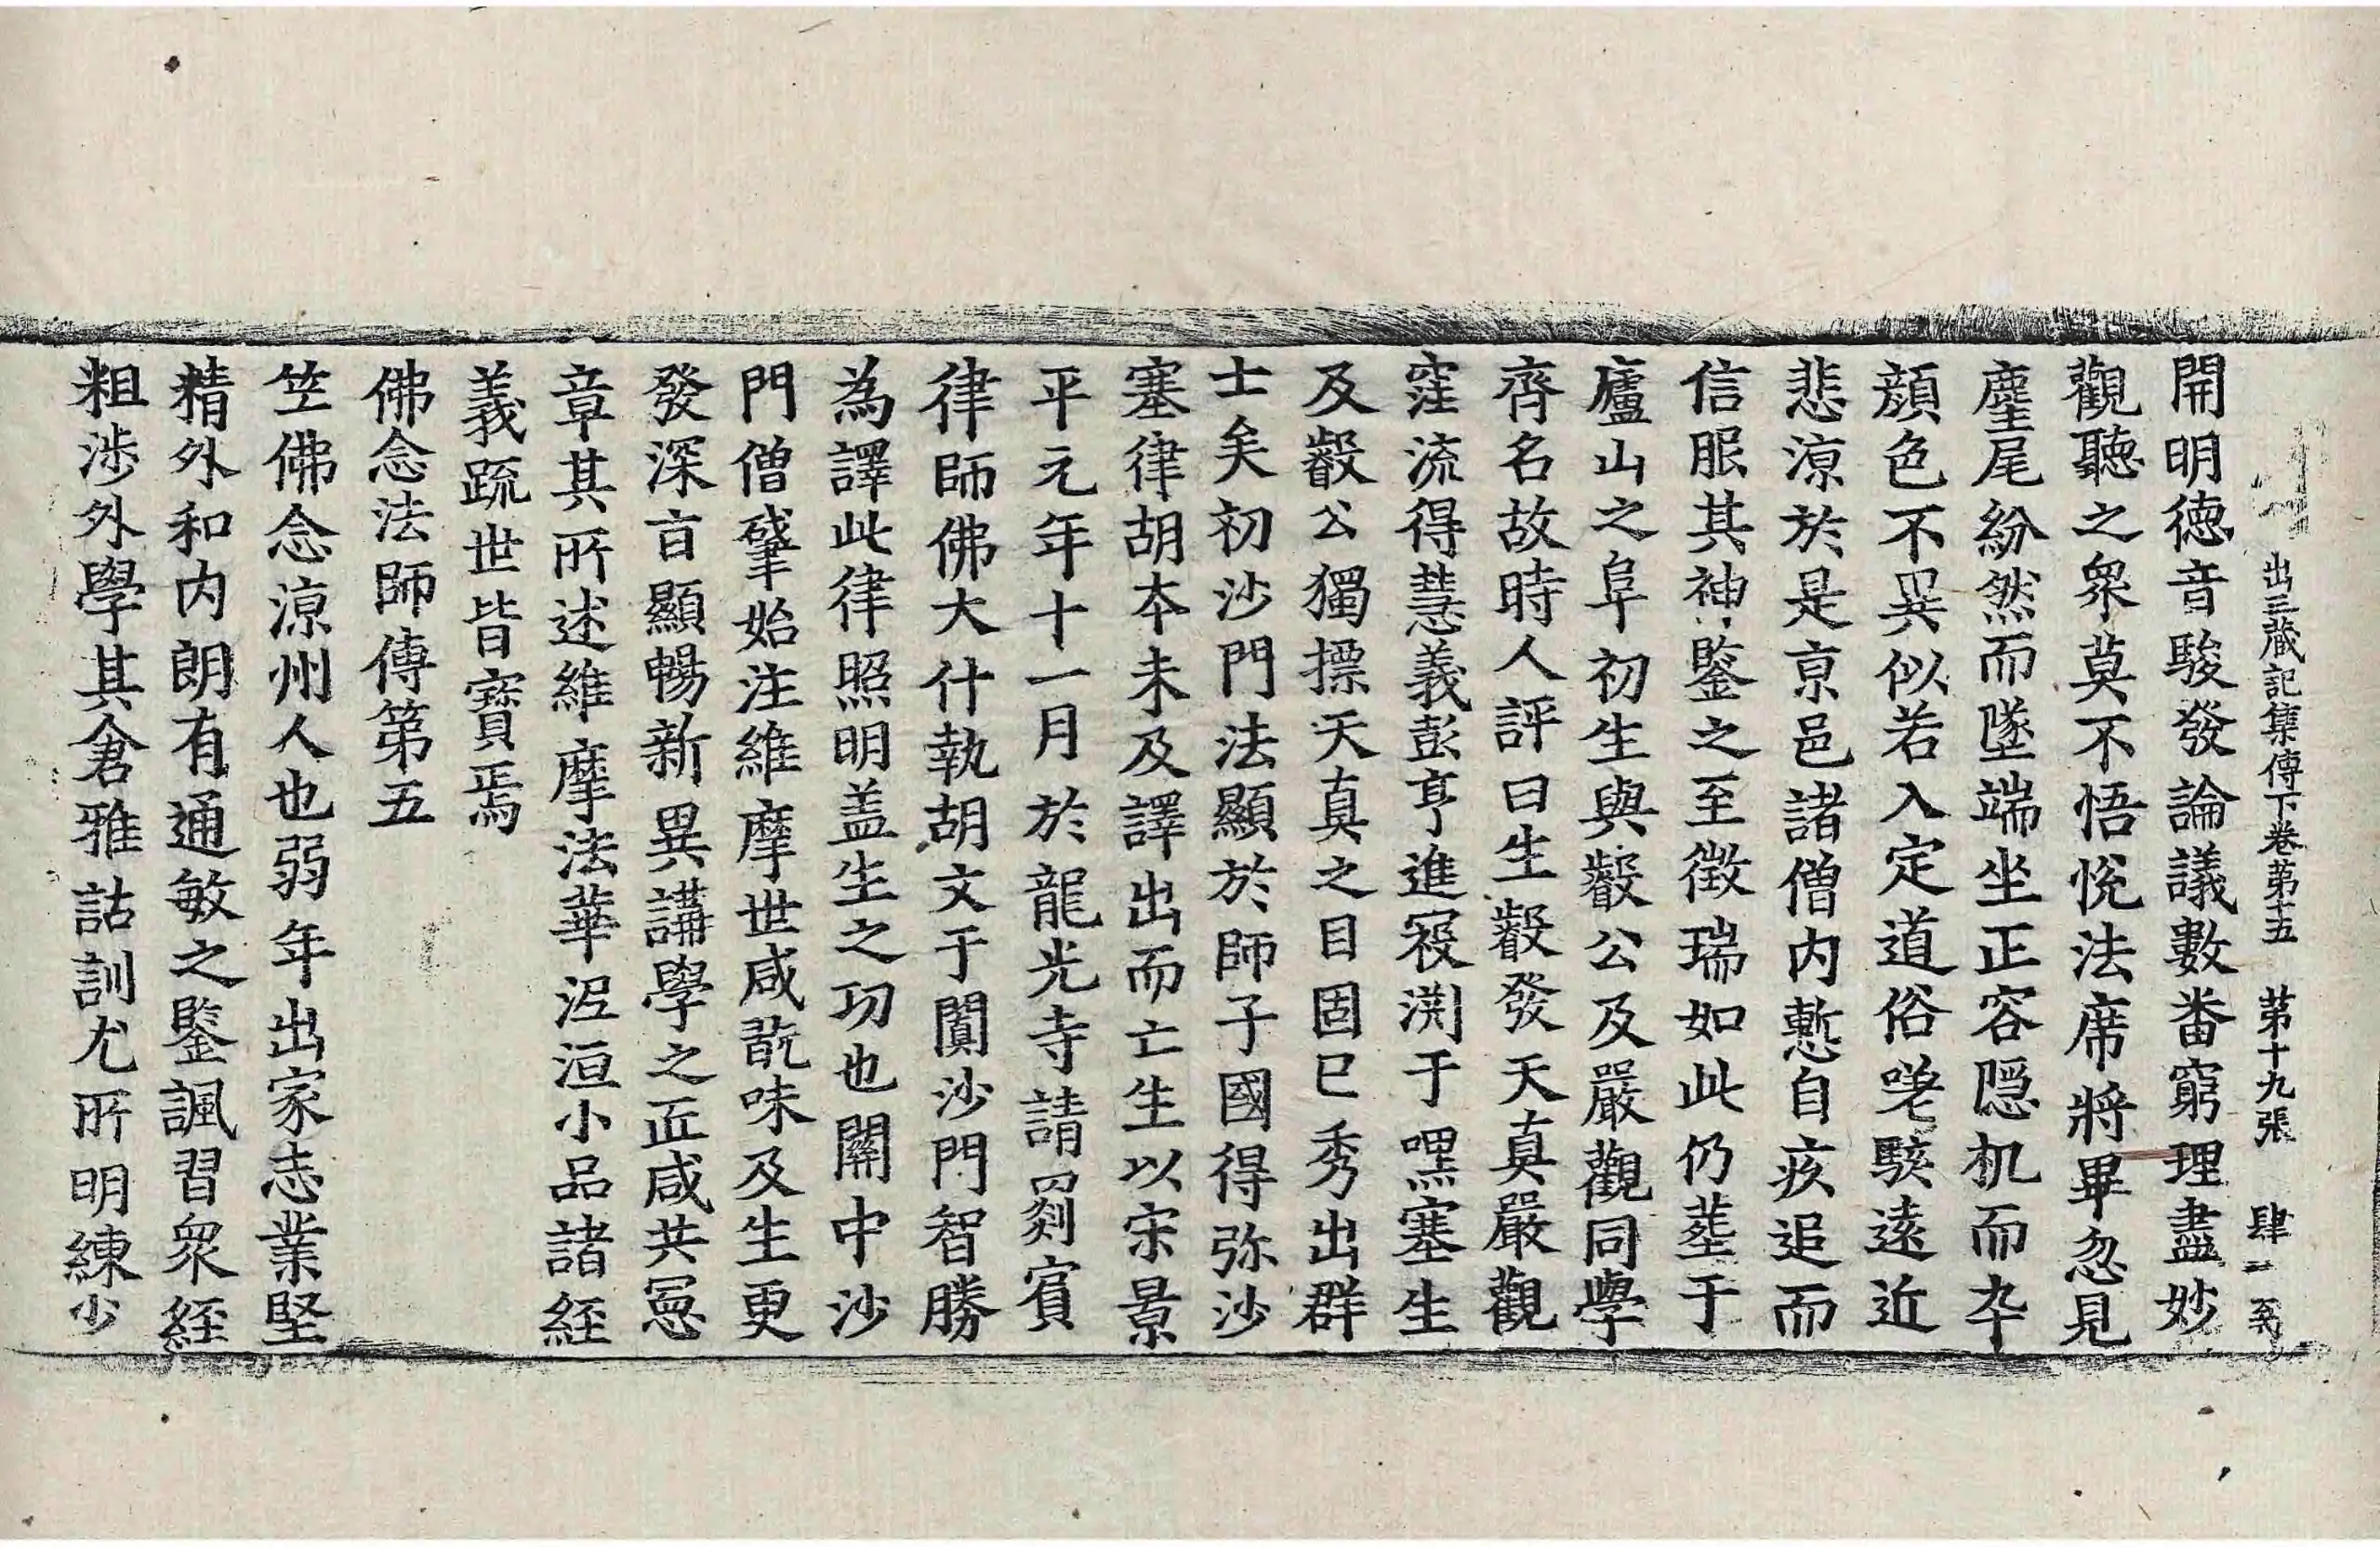 出三藏記集傳下卷第十五 第十九張 肆
開明德音駿發論議數番窮理盡妙
觀聽之衆莫不悟悅法席將畢忽見
麈尾紛然而墜端坐正容隱机而卒
顔色不異似若入定道俗嗟駭遠近
悲涼於是京邑諸僧内慙自疚追而
信服其神鑒之至徵瑞如此仍葬于
廬山之阜初生與叡公及嚴觀同學
齊名故時人評曰生叡發天真嚴觀
窪流得慧義彭亨進寇淵于嘿塞生
及叡公獨標天真之目固已秀出群
士矣初沙門法顯於師子國得弥沙
塞律胡本未及譯出而亡生以宋景
平元年十一月於龍光寺請罽賓
律師佛大什執胡文于闐沙門智勝
為譯此律照明盖生之功也關中沙
門僧肇始注維摩世咸翫味及生更
發深旨顯暢新異講學之匠咸共憲
章其所述維摩法華泥洹小品諸經
義疏世皆寶焉
佛念法師傳第五
竺佛念涼州人也弱年出家志業堅
精外和内朗有通敏之鑒諷習衆經
粗涉外學其倉雅詁訓尤所明練少